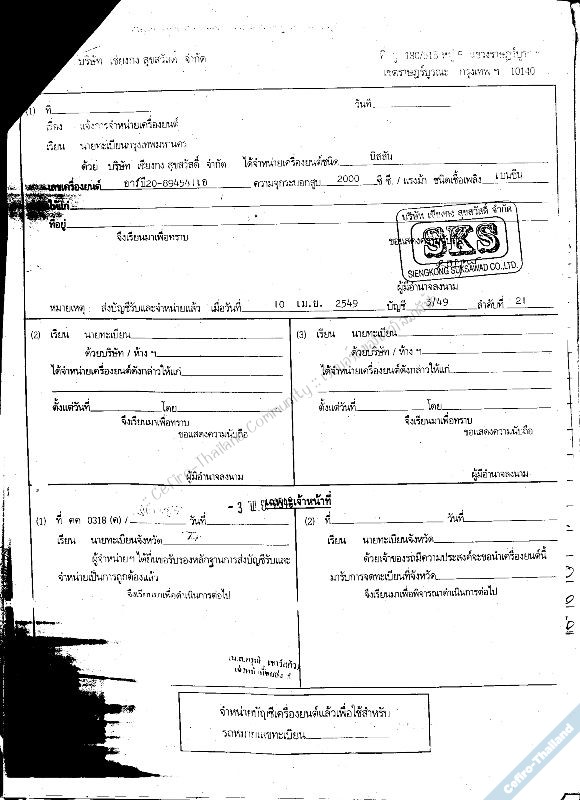 บริษัท เซียงกง สุขสวัสดิ์ จำกัด
เขตราษฎร์บูรณะ กรุงเทพ ฯ 10140
(1) ที่ วันที่
เรื่อง แจ้งการจำหน่ายเครื่องยนต์
เรียน นายทะเบียนกรุงเทพมหานคร
ด้วย บริษัท เซียงกง สุขสวัสดิ์ จำกัด ได้จำหน่ายเครื่องยนต์ชนิด นิสสัน
เลขเครื่องยนต์ อาร์บี20-894541เอ ความจุกระบอกสูบ 2000 ซี ซี. / แรงม้า ชนิดเชื้อเพลิง เบนซิน
ที่อยู่
บริษัท เซียงกง สุขสวัสดิ์ จำกัด
SKS
SIENGKONG SUKSAWAD CO.,LTD.
จึงเรียนมาเพื่อทราบ
ขอแสดงความนับถือ
ผู้มีอำนาจลงนาม
หมายเหตุ ส่งบัญชีรับและจำหน่ายแล้ว เมื่อวันที่ 10 เม.ย. 2549 บัญชี 3/49 ลำดับที่ 21
(2) เรียน นายทะเบียน
ด้วยบริษัท / ห้าง ฯ
ได้จำหน่ายเครื่องยนต์ดังกล่าวให้แก่
ตั้งแต่วันที่ โดย
จึงเรียนมาเพื่อทราบ
ขอแสดงความนับถือ
ผู้มีอำนาจลงนาม
(3) เรียน นายทะเบียน
ด้วยบริษัท / ห้าง ฯ
ได้จำหน่ายเครื่องยนต์ดังกล่าวให้แก่
ตั้งแต่วันที่ โดย
จึงเรียนมาเพื่อทราบ
ขอแสดงความนับถือ
ผู้มีอำนาจลงนาม
Cefiro-Thailand Community ::
เฉพาะเจ้าหน้าที่
(1) ที่ คค 0318 (ค) / วันที่
เรียน นายทะเบียนจังหวัด
ผู้จำหน่ายฯ ได้ยื่นขอรับรองหลักฐานการส่งบัญชีรับและ
จำหน่ายเป็นการถูกต้องแล้ว
จึงเรียนมาเพื่อดำเนินการต่อไป
(2) ที่ วันที่
เรียน นายทะเบียนจังหวัด
ด้วยเจ้าของรถมีความประสงค์จะขอนำเครื่องยนต์นี้
มารับการจดทะเบียนที่จังหวัด
จึงเรียนมาเพื่อพิจารณาดำเนินการต่อไป
จำหน่ายบัญชีเครื่องยนต์แล้วเพื่อใช้สำหรับ
รถหมายเลขทะเบียน
Cefiro-Thailand